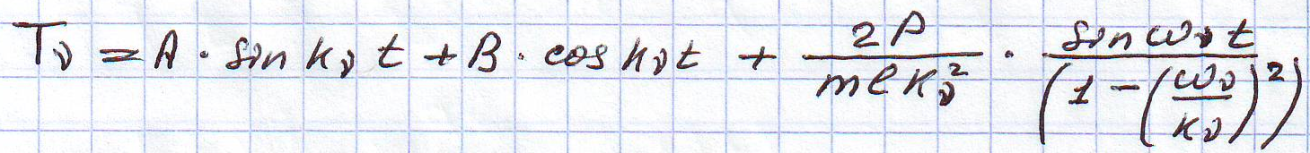 T_ν = A · sin k_ν t + B · cos k_ν t + \frac{2P}{m l k_ν^2} · \frac{sin ω_ν t}{(1 - (\frac{ω_ν}{k_ν})^2)}